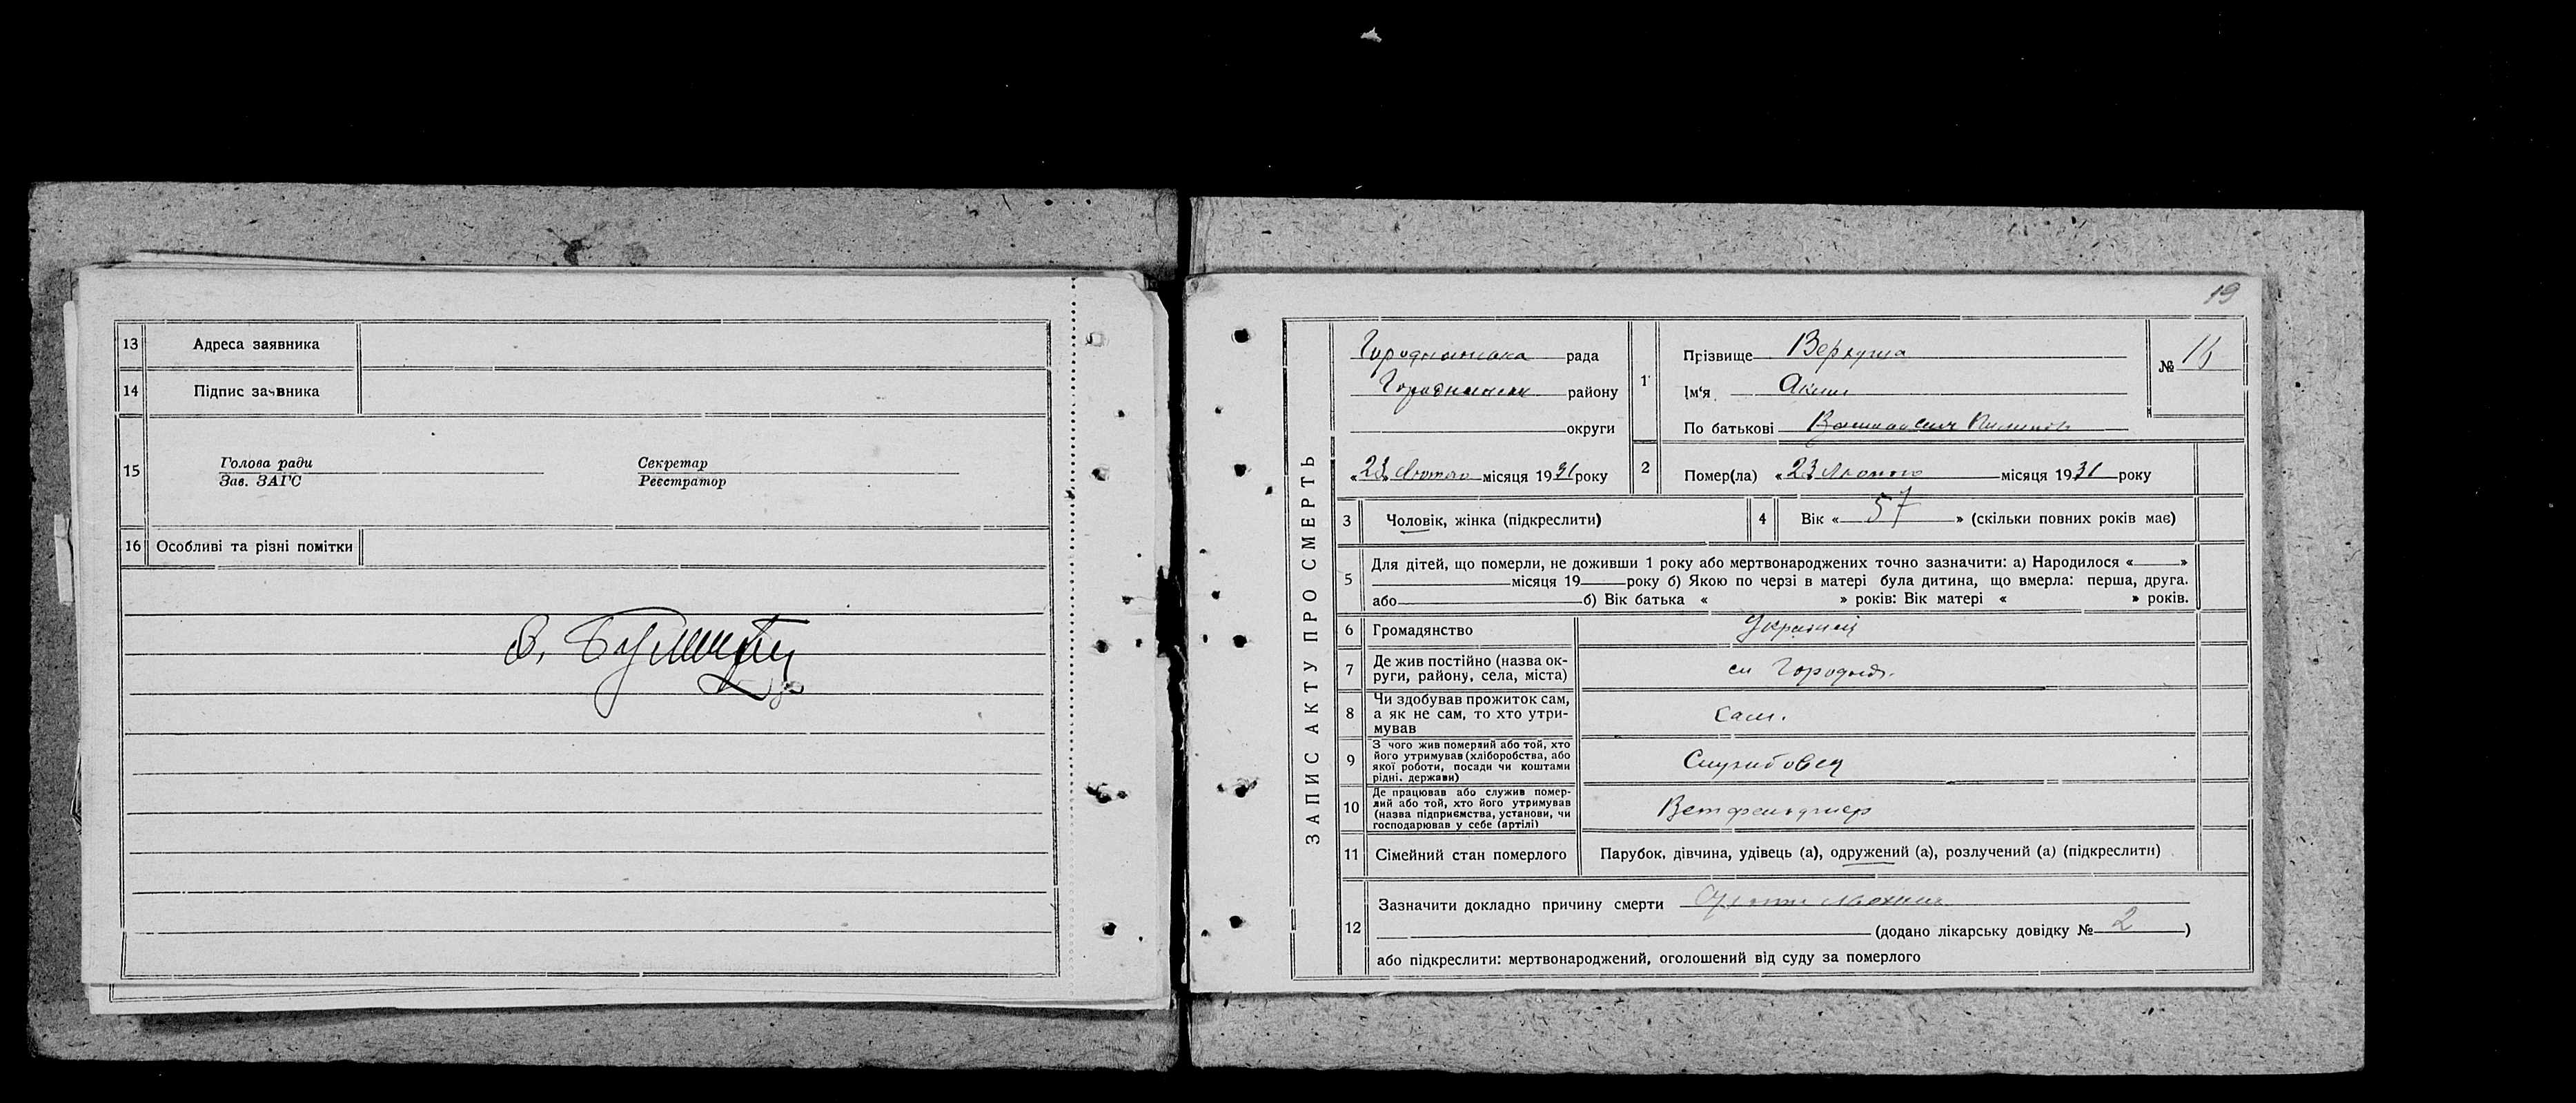 13 Адреса заявника
14 Підпис заявника
15 Голова ради
Зав. ЗАГС
Секретар
Реєстратор
16 Особливі та різні помітки
19
ЗАПИС АКТУ ПРО СМЕРТЬ
Городнянська рада
Городнянськ району
округи
«23» Лютого місяця 1931 року
1 Прізвище Верхуша
Ім'я Аким
По батькові
№
2 Помер(ла) «23 Лютого місяця 1931 року
3 Чоловік, жінка (підкреслити)
4 Вік « 57 » (скільки повних років має)
5 Для дітей, що померли, не доживши 1 року або мертвонароджених точно зазначити: а) Народилося « »
місяця 19 року б) Якою по черзі в матері була дитина, що вмерла: перша, друга.
або б) Вік батька « » років: Вік матері « » років.
6 Громадянство Українец
7 Де жив постійно (назва ок-
руги, району, села, міста) см Городня.
8 Чи здобував прожиток сам,
а як не сам, то хто утри-
мував сам.
9 З чого жив померлий або той, хто
його утримував (хліборобства, або
якої роботи, посади чи коштами
рідні, держави) Службовец
10 Де працював або служив помер-
лий або той, хто його утримував
(назва підприємства, установи, чи
господарював у себе (артілі) Ветфельдшер
11 Сімейний стан померлого Парубок, дівчина, удівець (а), одружений (а), розлучений (а) (підкреслити)
12 Зазначити докладно причину смерти
(додано лікарську довідку № 2 )
або підкреслити: мертвонароджений, оголошений від суду за померлого